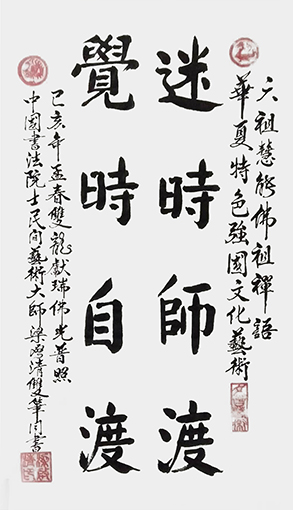 六祖慧能佛祖禪語
華夏特色強國文化藝術
迷時師渡
覺時自渡
己亥年孟春雙龍獻瑞佛光普照
中國書法院士民間藝術大師梁增清雙筆同書